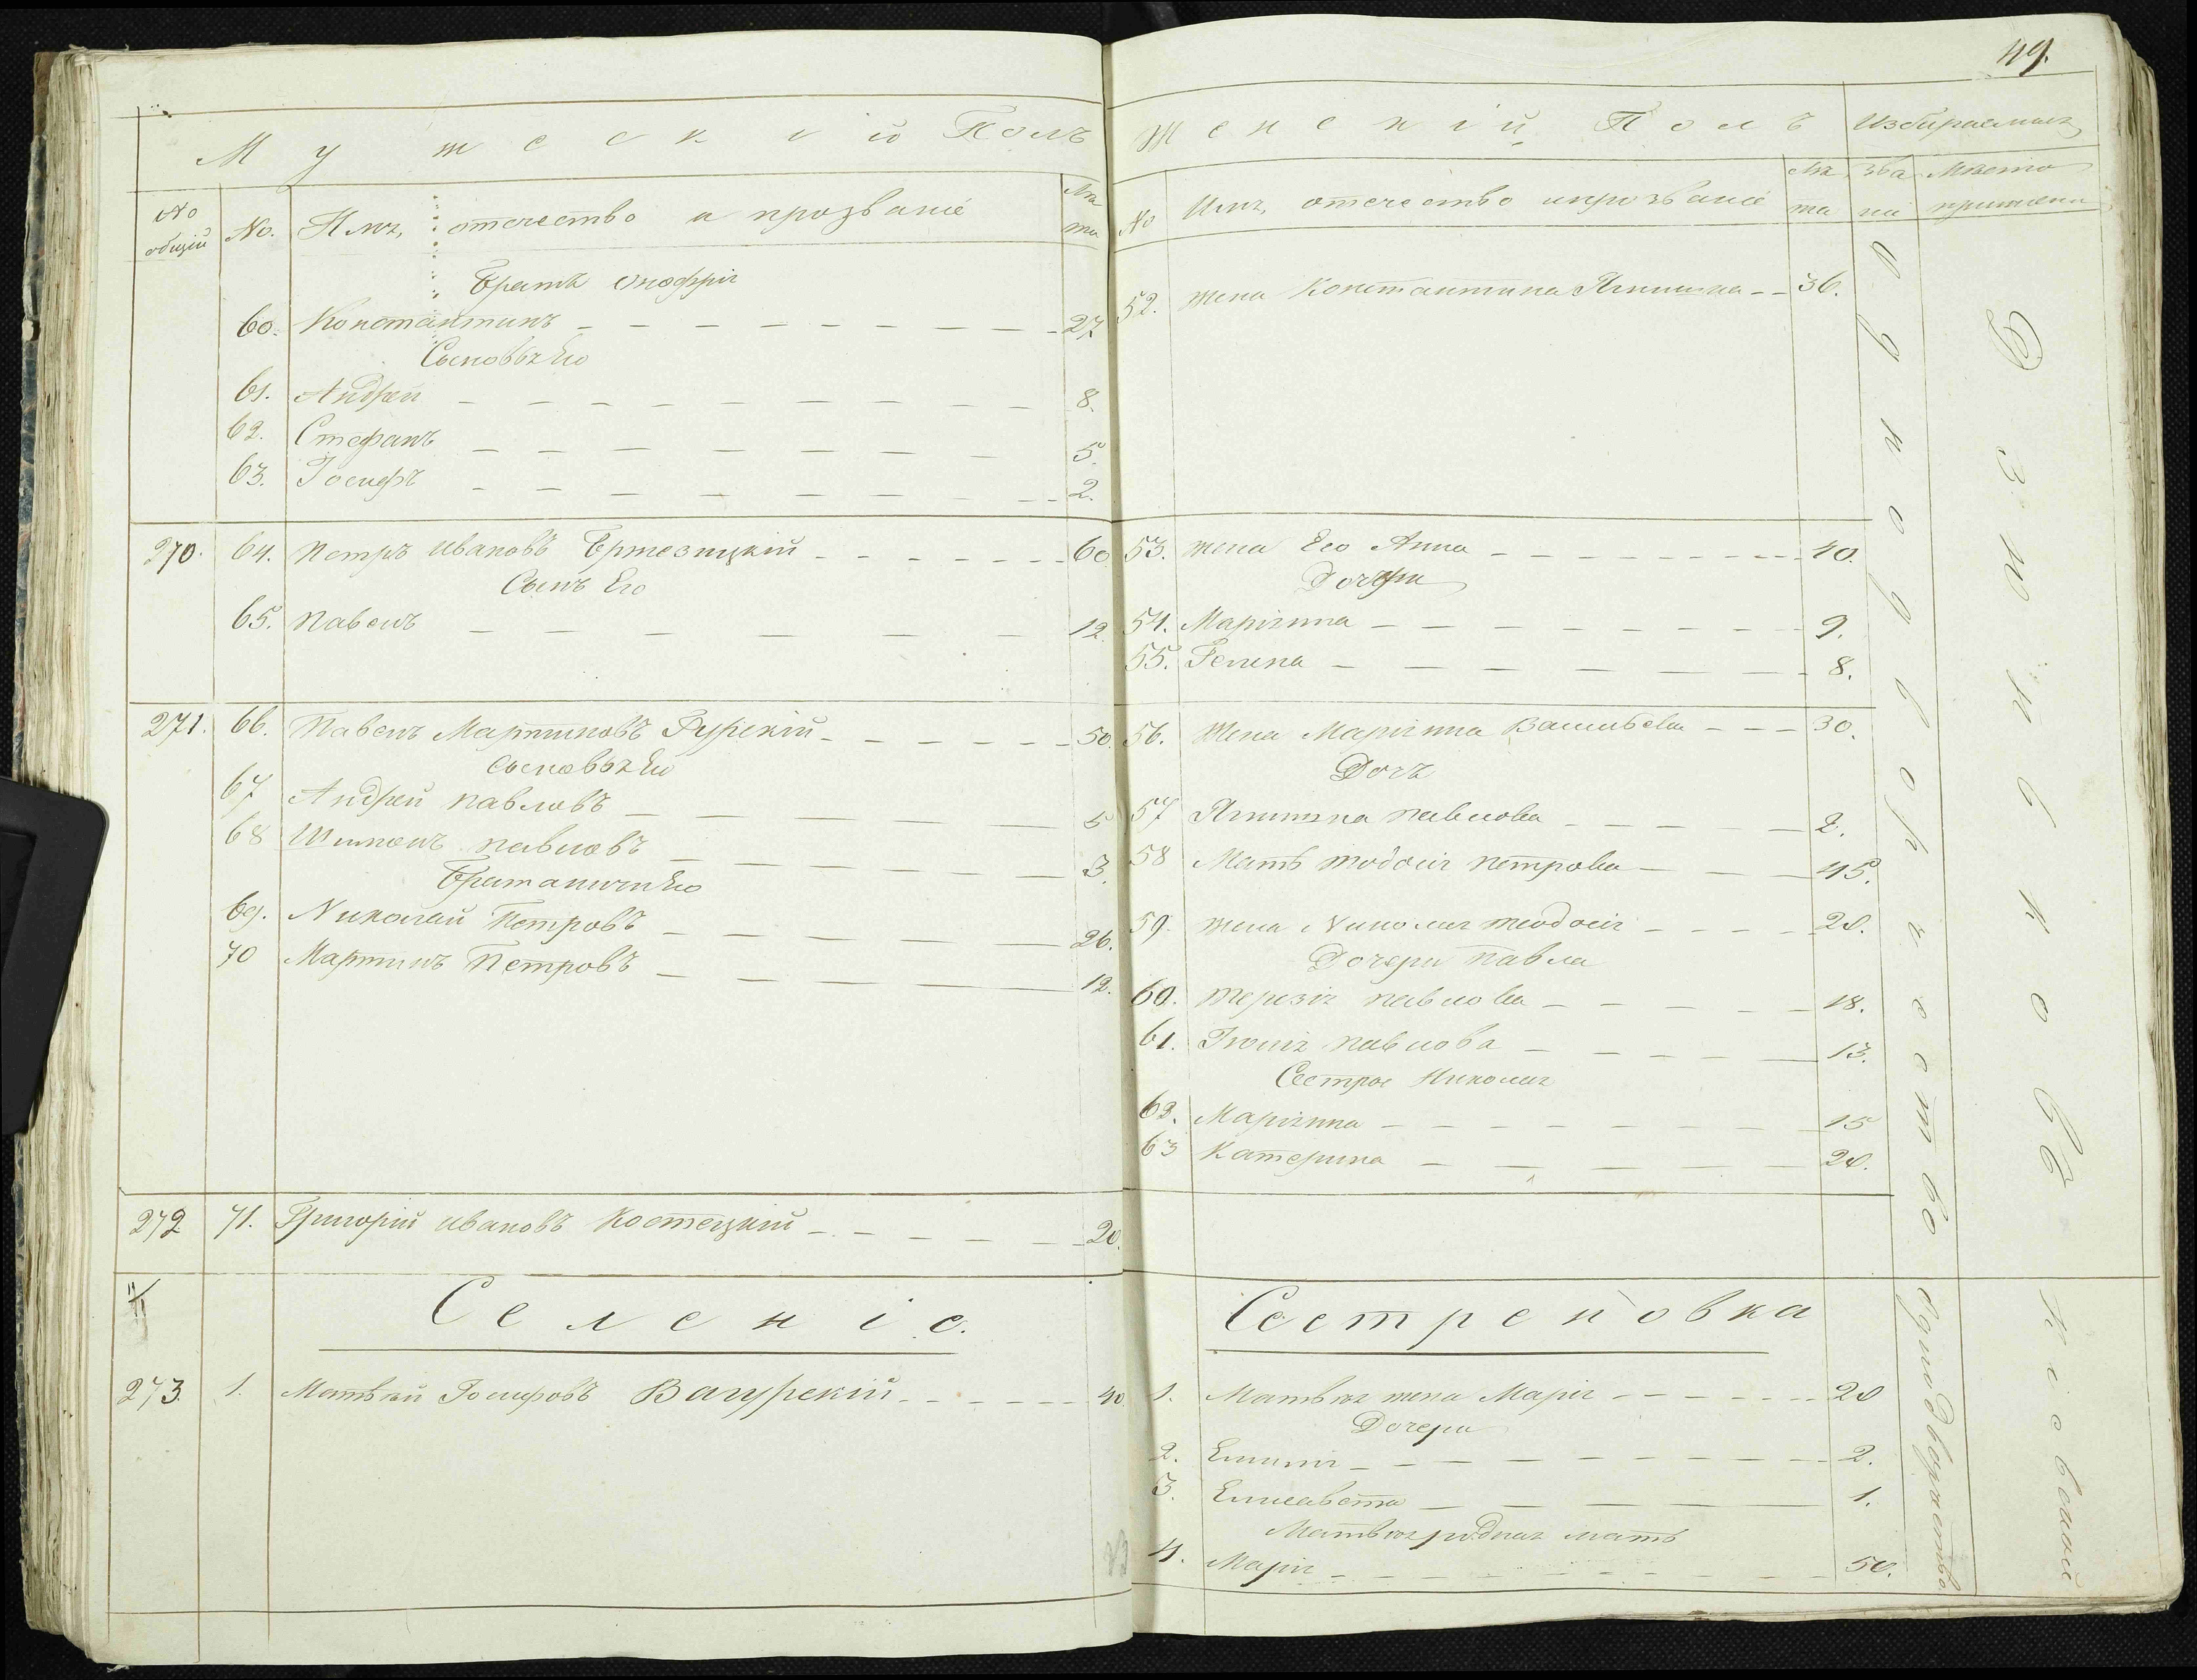 Мужескій Полъ
№ общій
№.
Имя, отечество и прозваніе
Лѣта
Братъ Онофрія
60. Константинъ 27
Сыновья Его
61. Андрей 8.
62. Стефанъ 5.
63. Іосифъ 2.
270. 64. Петръ Ивановъ 60
Сынъ Его
65. Павелъ 12
271. 66. Павелъ Мартиновъ Гурскій 50.
Сыновья Его
67 Андрей Павловъ 5
68 Шимонъ Павловъ 3.
Братаничи Его
69. Николай Петровъ 26.
70 Мартинъ Петровъ 12.
272 71. Григорій Ивановъ Костецкій 20.
Селеніе.
273. 1. Матвѣй Іосифовъ 40
49.
Женскій Полъ
Избираемыхъ
№
Имя, отечество и прозваніе
Лѣта
званія
Мѣсто
52. Жена Константина Ягнишка 36.
53. Жена Его Анна 40.
Дочери
54. Маріянна 9.
55. Гелена 8.
56. Жена Маріянна Васильева 30.
Дочь
57 Ягнишка Павлова 2.
58 Мать Теодосія Петрова 45.
59. Жена Николая Теодосія 20.
Дочери Павла
60. Терезія Павлова 18.
61. Юлія Павлова 13.
Сестры Николая
62. Маріянна 15
63 Катерина 20.
Сестреновка
1. Матвѣя жена Марія 20
Дочери
2. Емилія 2.
3. Елисавета 1.
Матвѣя родная мать
4. Марія 50.
Однодворчество
Дзюньковъ
Однодворчество